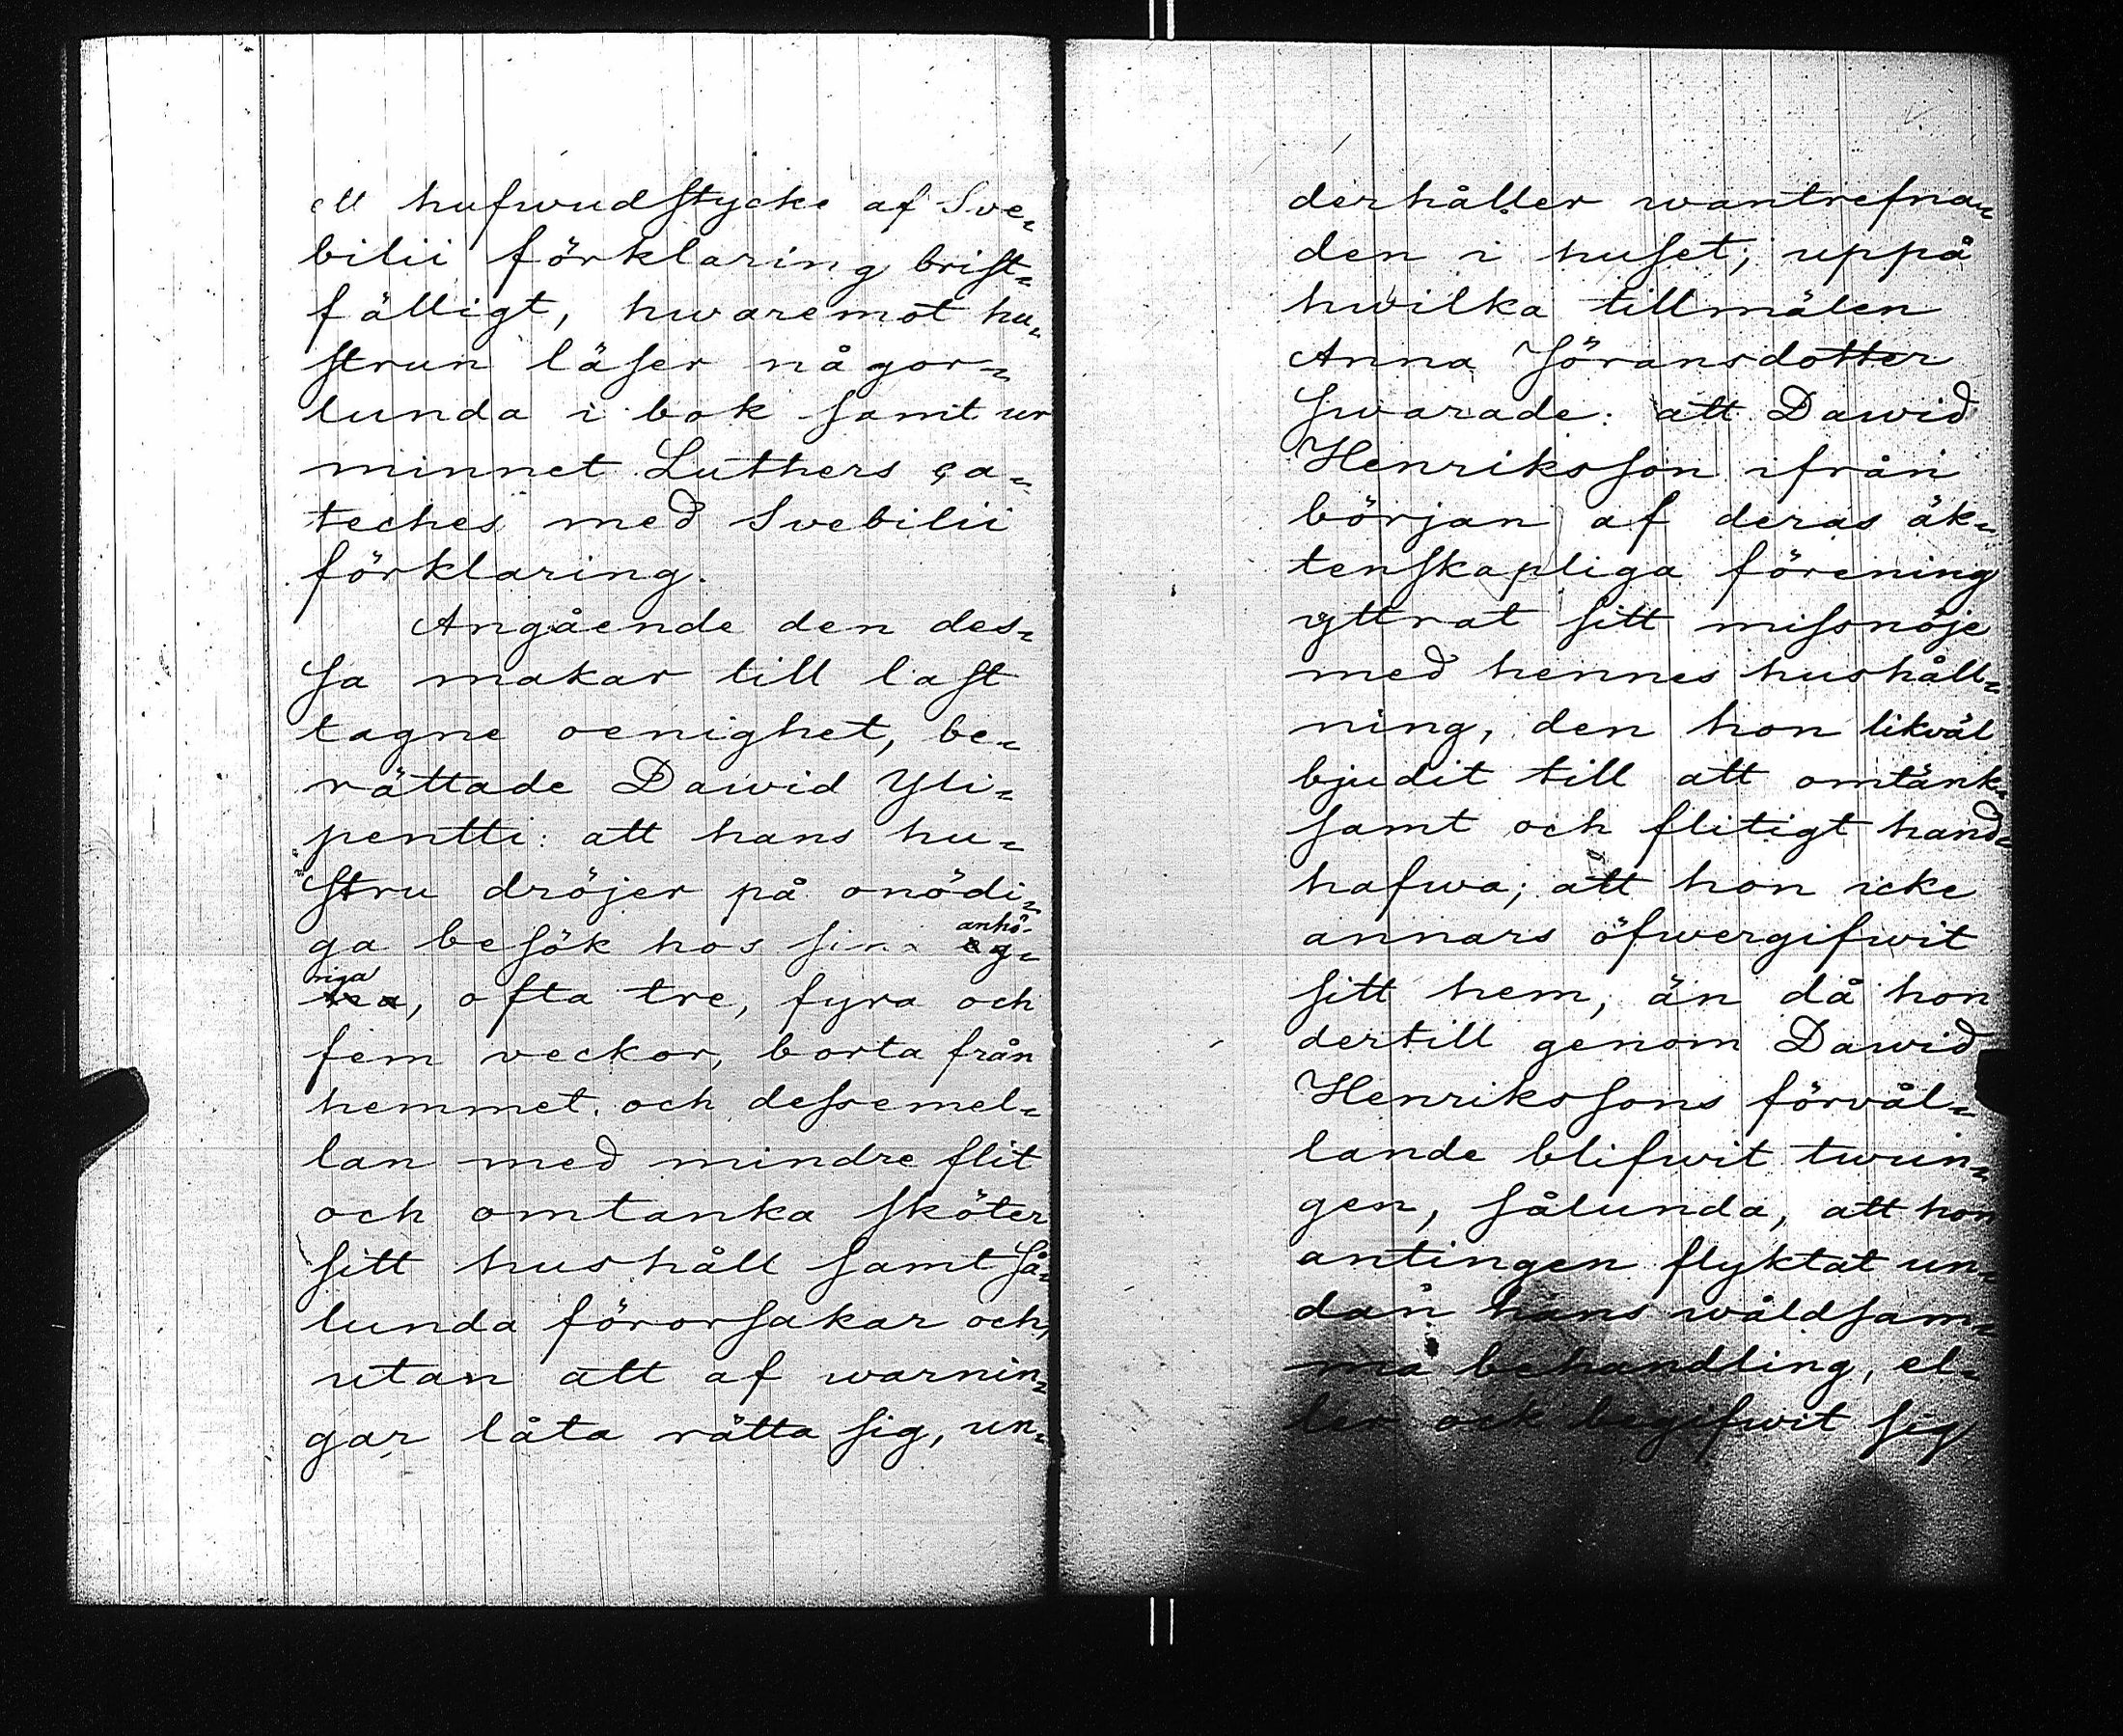 ett hufwudstycke af Sve=
bilii förklaring brist=
fälligt, hwaremot hu=
strun läser någor=
lunda i bok samt ur
minnet Luthers ca=
teches med Svebilii
förklaring.
Angående den des=
sa makar till last
tagne oenighet, be=
rättade Dawid Yli=
pentti: att hans hu=
stru dröjer på onödi=
ga besök hos sina anhö-
riga, ofta tre, fyra och
fem veckor, borta från
hemmet, och dessemel=
lan med mindre flit
och omtanka sköter
sitt hushåll samt så=
lunda förorsakar och,
utan att af warnin=
gar låta rätta sig, un=
derhåller wantrefna=
den i huset; uppå
hwilka tillmälen
Anna Jöransdotter
swarade: att Dawid
Henriksson ifrån
början af deras äk=
tenskapliga förening
yttrat sitt missnöje
med hennes hushåll=
ning, den hon likväl
bjudit till att omtänk=
samt och flitigt hand=
hafwa; att hon icke
annars öfwergifwit
sitt hem, än då hon
dertill genom Dawid
Henrikssons förvål=
lande blifwit twun=
gen, sålunda, att hon
antingen flyktat un=
dan hans wåldsam=
ma behandling, el=
ler ock begifwit sig